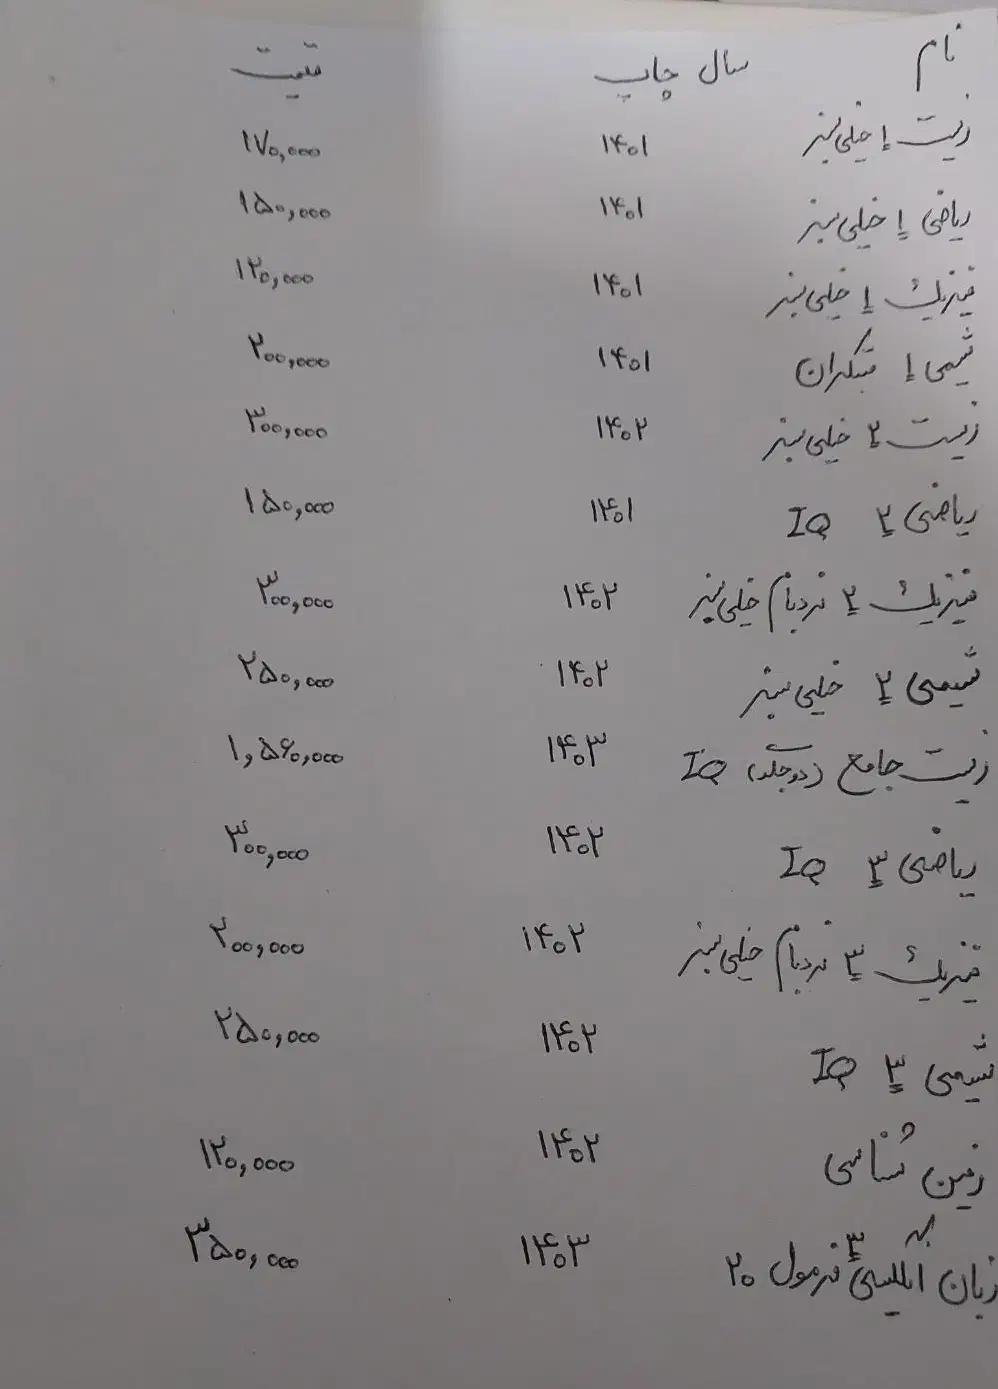 نام سال چاپ قیمت
زیست ۱ خیلی سبز ۱۴۰۱ ۱۷۰,۰۰۰
ریاضی ۱ خیلی سبز ۱۴۰۱ ۱۵۰,۰۰۰
فیزیک ۱ خیلی سبز ۱۴۰۱ ۱۲۰,۰۰۰
شیمی ۱ مبتکران ۱۴۰۱ ۲۰۰,۰۰۰
زیست ۲ خیلی سبز ۱۴۰۲ ۳۰۰,۰۰۰
ریاضی ۲ IQ ۱۴۰۱ ۱۵۰,۰۰۰
فیزیک ۲ نردبام خیلی سبز ۱۴۰۲ ۳۰۰,۰۰۰
شیمی ۲ خیلی سبز ۱۴۰۲ ۲۵۰,۰۰۰
زیست جامع (دوجلد) IQ ۱۴۰۳ ۱,۵۶۰,۰۰۰
ریاضی ۳ IQ ۱۴۰۲ ۳۰۰,۰۰۰
فیزیک ۳ نردبام خیلی سبز ۱۴۰۲ ۲۰۰,۰۰۰
شیمی ۳ IQ ۱۴۰۲ ۲۵۰,۰۰۰
زمین شناسی ۱۴۰۲ ۱۲۰,۰۰۰
زبان انگلیسی ۳ فرمول ۲۰ ۱۴۰۳ ۳۵۰,۰۰۰